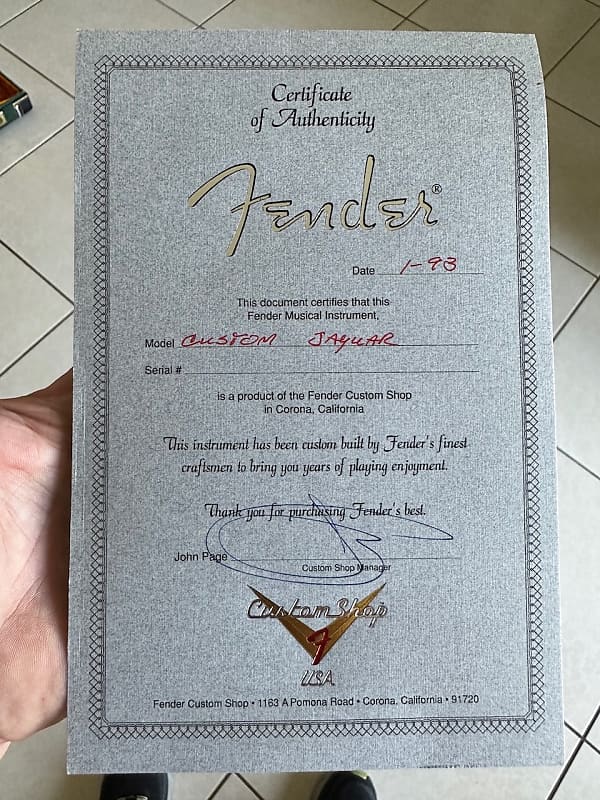 Certificate
of Authenticity
Fender®
Date 1-93
This document certifies that this
Fender Musical Instrument,
Model CUSTOM JAGUAR
Serial #
is a product of the Fender Custom Shop
in Corona, California
This instrument has been custom built by Fender's finest
craftsmen to bring you years of playing enjoyment.
Thank you for purchasing Fender's best.
John Page
Custom Shop Manager
Custom Shop
USA
Fender Custom Shop • 1163 A Pomona Road • Corona, California • 91720